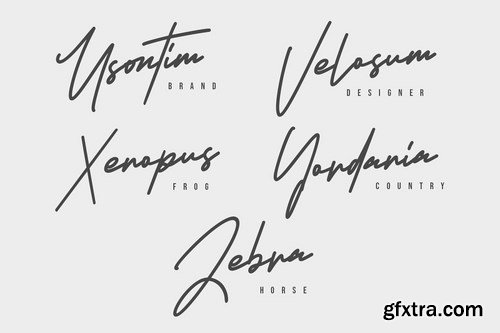 Usontim
BRAND
Velosum
DESIGNER
Xenopus
FROG
Yordania
COUNTRY
Zebra
HORSE
gfxtra.com